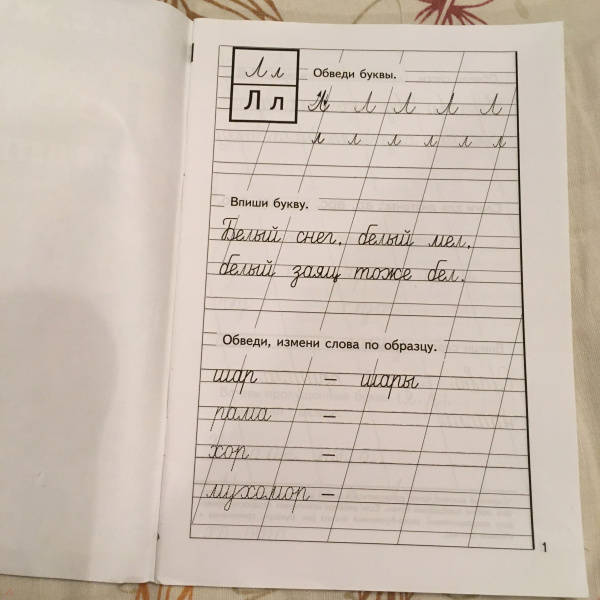 Л л
Обведи буквы.
Л л
Л Л Л Л Л
л л л л л л
Впиши букву.
Белый снег, белый мел,
белый заяц тоже бел.
Обведи, измени слова по образцу.
шар – шары
рама –
хор –
мухомор –
1